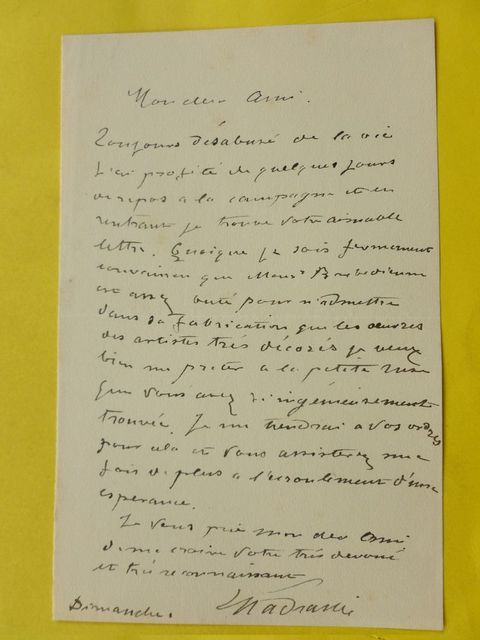 Mon cher Ami.
Toujours désabusé de la vie
j'ai profité de quelques jours
de repos a la campagne et en
rentrant je trouve votre aimable
lettre. Quoique je sois fermement
convaincu que Monsr Barbedienne
est assez buté pour n'admettre
dans sa fabrication que les œuvres
des artistes très décorés je veux
bien me prêter a la petite ruse
que vous avez si ingénieusement
trouvée. Je me tiendrai a vos ordres
pour cela et vous assisterez une
fois de plus a l'écroulement d'une
espérance.
Je vous prie mon cher Ami
de me croire votre très dévoué
et très reconnaissant
Dimanche.